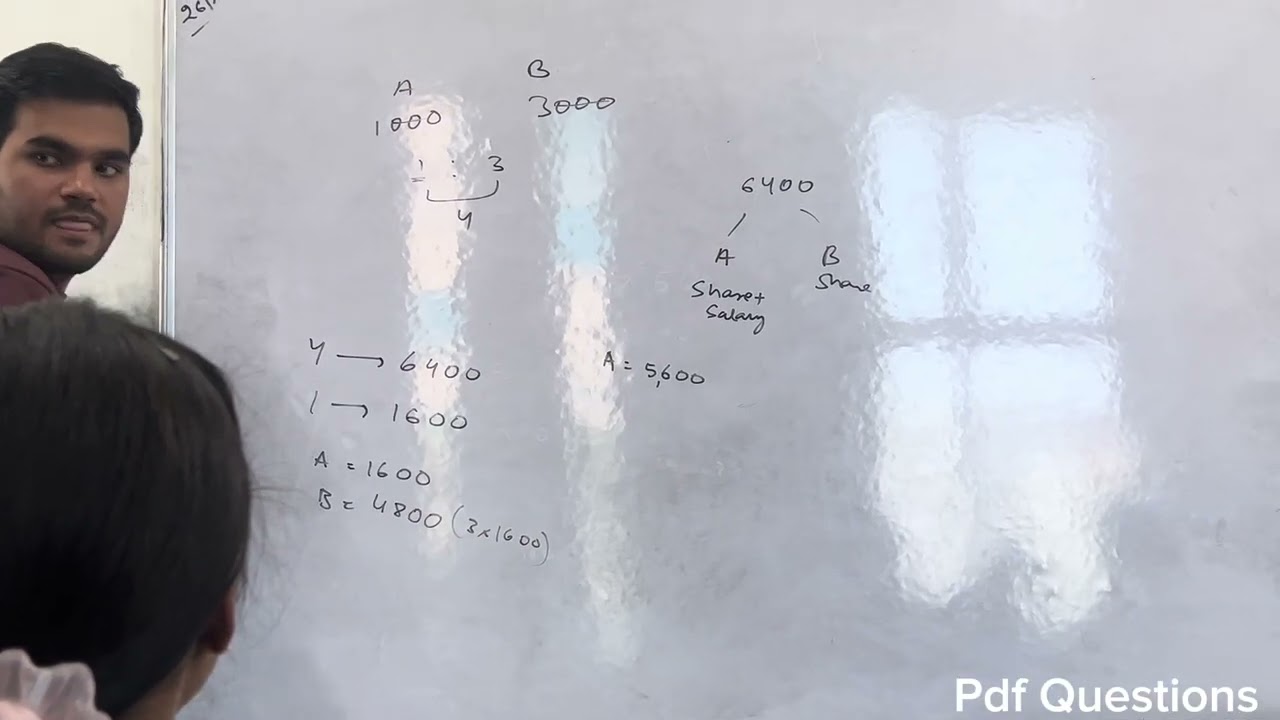 A
B
1000
3000
1 : 3
4
6400
A
B
Share+
Salary
Share
4 → 6400
1 → 1600
A = 1600
B = 4800 (3×1600)
A = 5,600
Pdf Questions